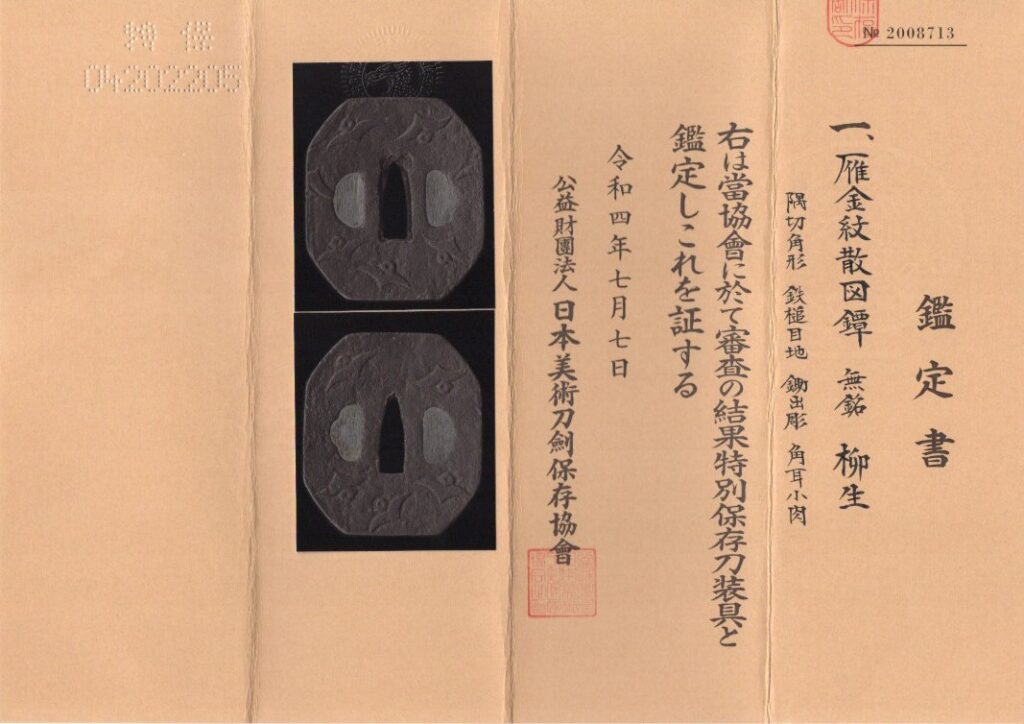 № 2008713
鑑定書
一、雁金紋散図鐔 無銘 柳生
隅切角形 鉄槌目地 鋤出彫 角耳小肉
右は當協會に於て審査の結果特別保存刀装具と
鑑定しこれを証する
令和四年七月七日
公益財團法人 日本美術刀劍保存協會
特保
04202205